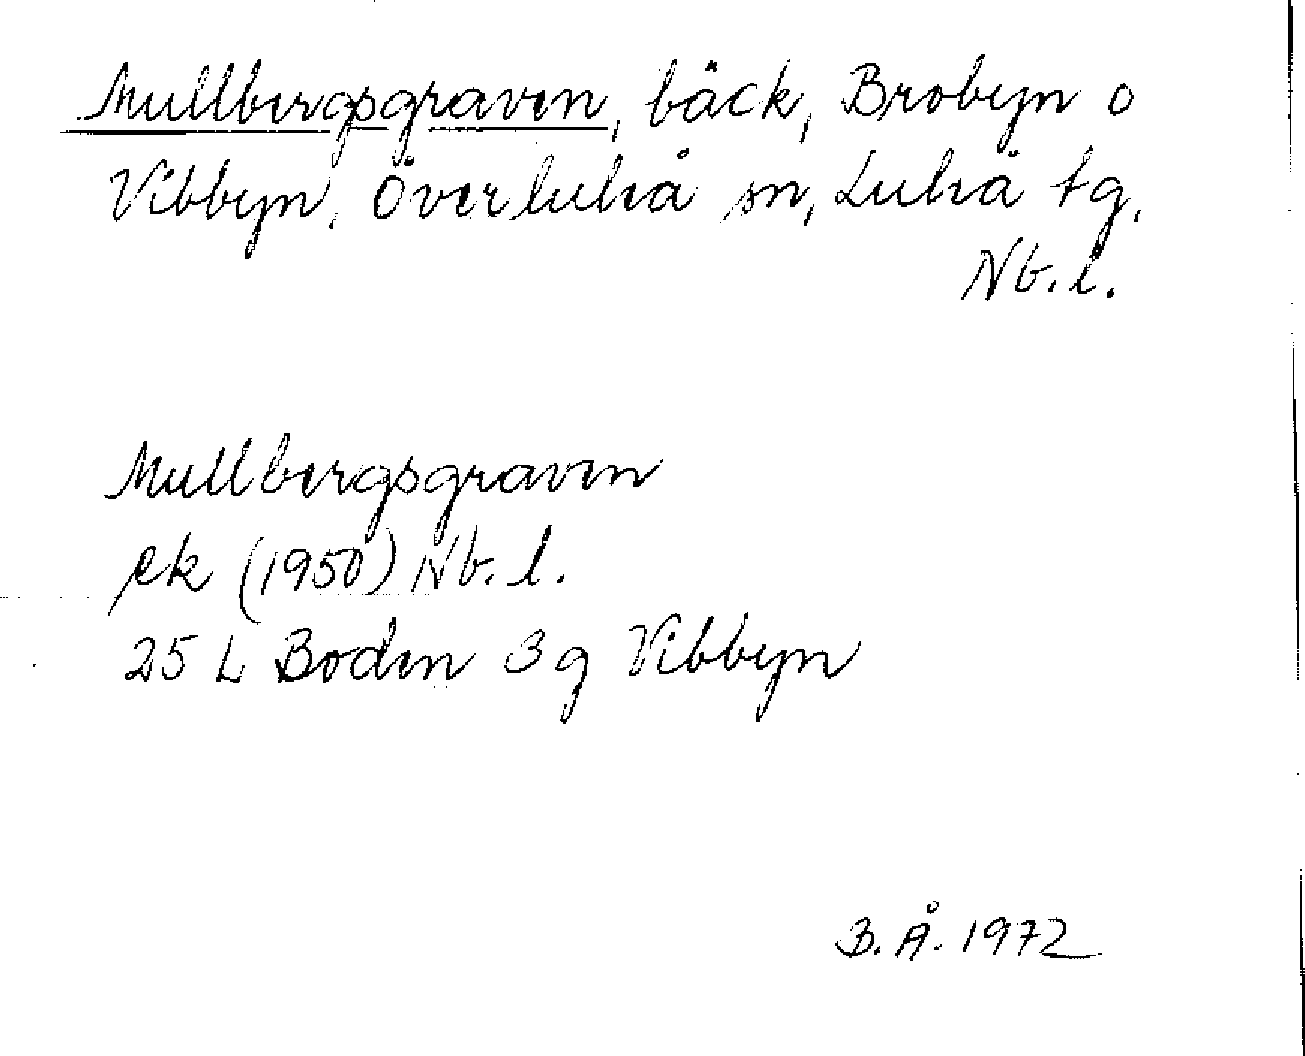 Mullbergsgraven, bäck, Brobyn o
Vibbyn, Överluleå sn, Luleå tg,
Nb. l.
Mullbergsgraven
ek (1950) Nb. l.
25 L Boden 3 g Vibbyn
B. Å. 1972